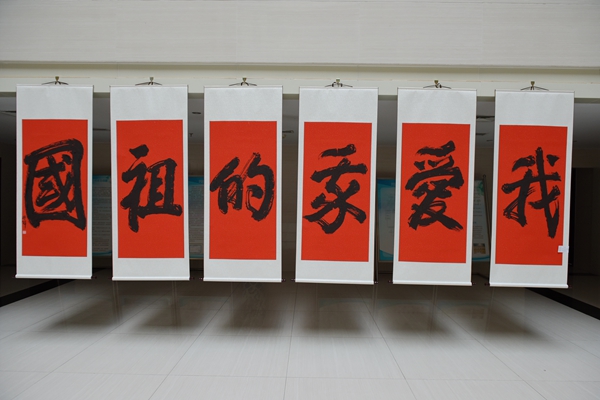 我愛我的祖國